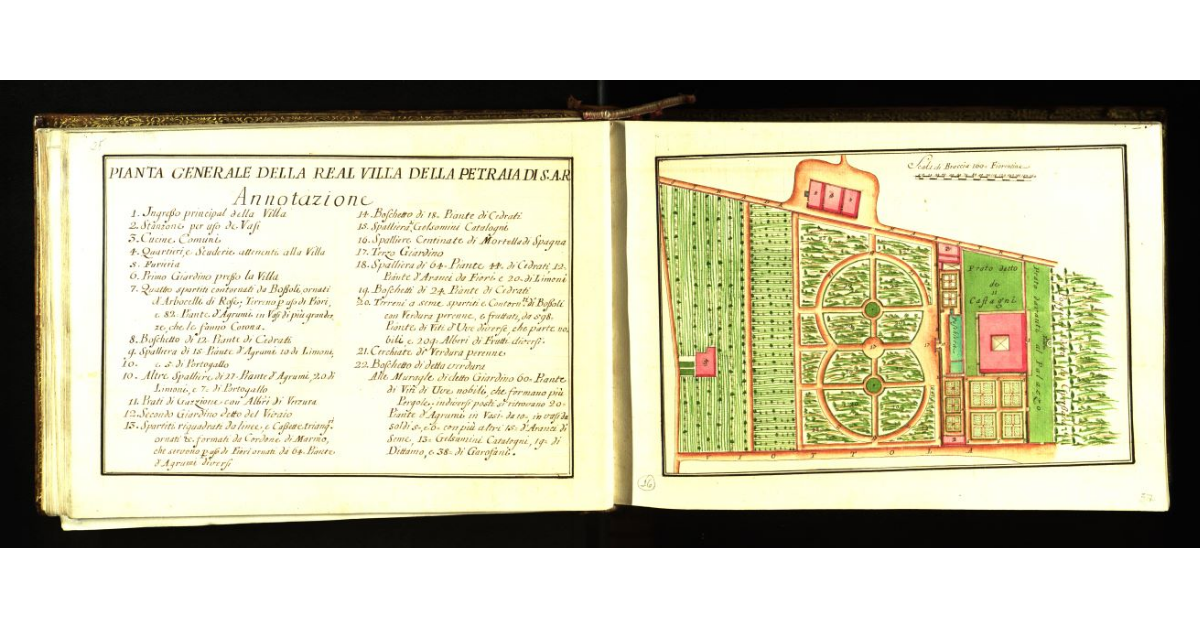 36
PIANTA GENERALE DELLA REAL VILLA DELLA PETRAIA DI S.A.R
Annotazione
1. Ingresso principal della Villa
2. Stanzone per uso de Vasi
3. Cucine Comuni
4. Quartieri, e Scuderie attenenti alla Villa
5.
6. Primo Giardino presso la Villa
7. Quattro spartiti contornati da Bossoli, ornati
d'Arborelle di Rose, Terreno p uso di Fiori,
e 82. Piante d'Agrumi in Vasi di più grandez
ze, che le fanno Corona.
8. Boschetto di 12. Piante di Cedrati
9. Spalliera di 15. Piante d'Agrumi 10 di Limoni,
e. 5. di Portogallo
10. Altre Spalliere di 27. Piante d'Agrumi, 20 di
Limoni, e 7. di Portogallo
11. Prati di con Albri di Verzura
12. Secondo Giardino detto del Vivaio
13. Spartiti riquadrati da linee, e
ornati &c. formati da Cordone di Marmo,
che servono p uso di Fiori ornati da 64. Piante
d'Agrumi diversi
14. Boschetto di 18. Piante di Cedrati
15. Spalliera Gelsomini Catalogni
16. Spalliere Centinate di Mortella di Spagna
17. Terzo Giardino
18. Spalliera di 64. Piante 44. di Cedrati, 12.
Piante d'Aranci da Fiori e 20. di Limoni
19. Boschetti di 24. Piante di Cedrati
20. Terreni a seme spartiti e Contorn.ti di Bossoli
con Verdura perenne, e fruttati, da 898.
Piante di Viti d'Uve diverse, che parte no
bili e 209. Albri di Frutti diversi.
21. Cerchate di Verdura perenne
22. Boschetto di detta verdura
Alle Muraglie di detto Giardino 60. Piante
di Viti di Uve nobili, che formano più
Pergole, in diversi posti si ritrovano 20.
Piante d'Agrumi in Vasi da 10. in
soldi 5, e 6. con più altri 15. d'Aranci di
Seme, 13. Gelsomini Catalogni, 19. di
Dittamo, e 38. di Garofani.
Scala di Braccia 160. Fiorentine
Prato detto
de
i
Castagni
Prato
16